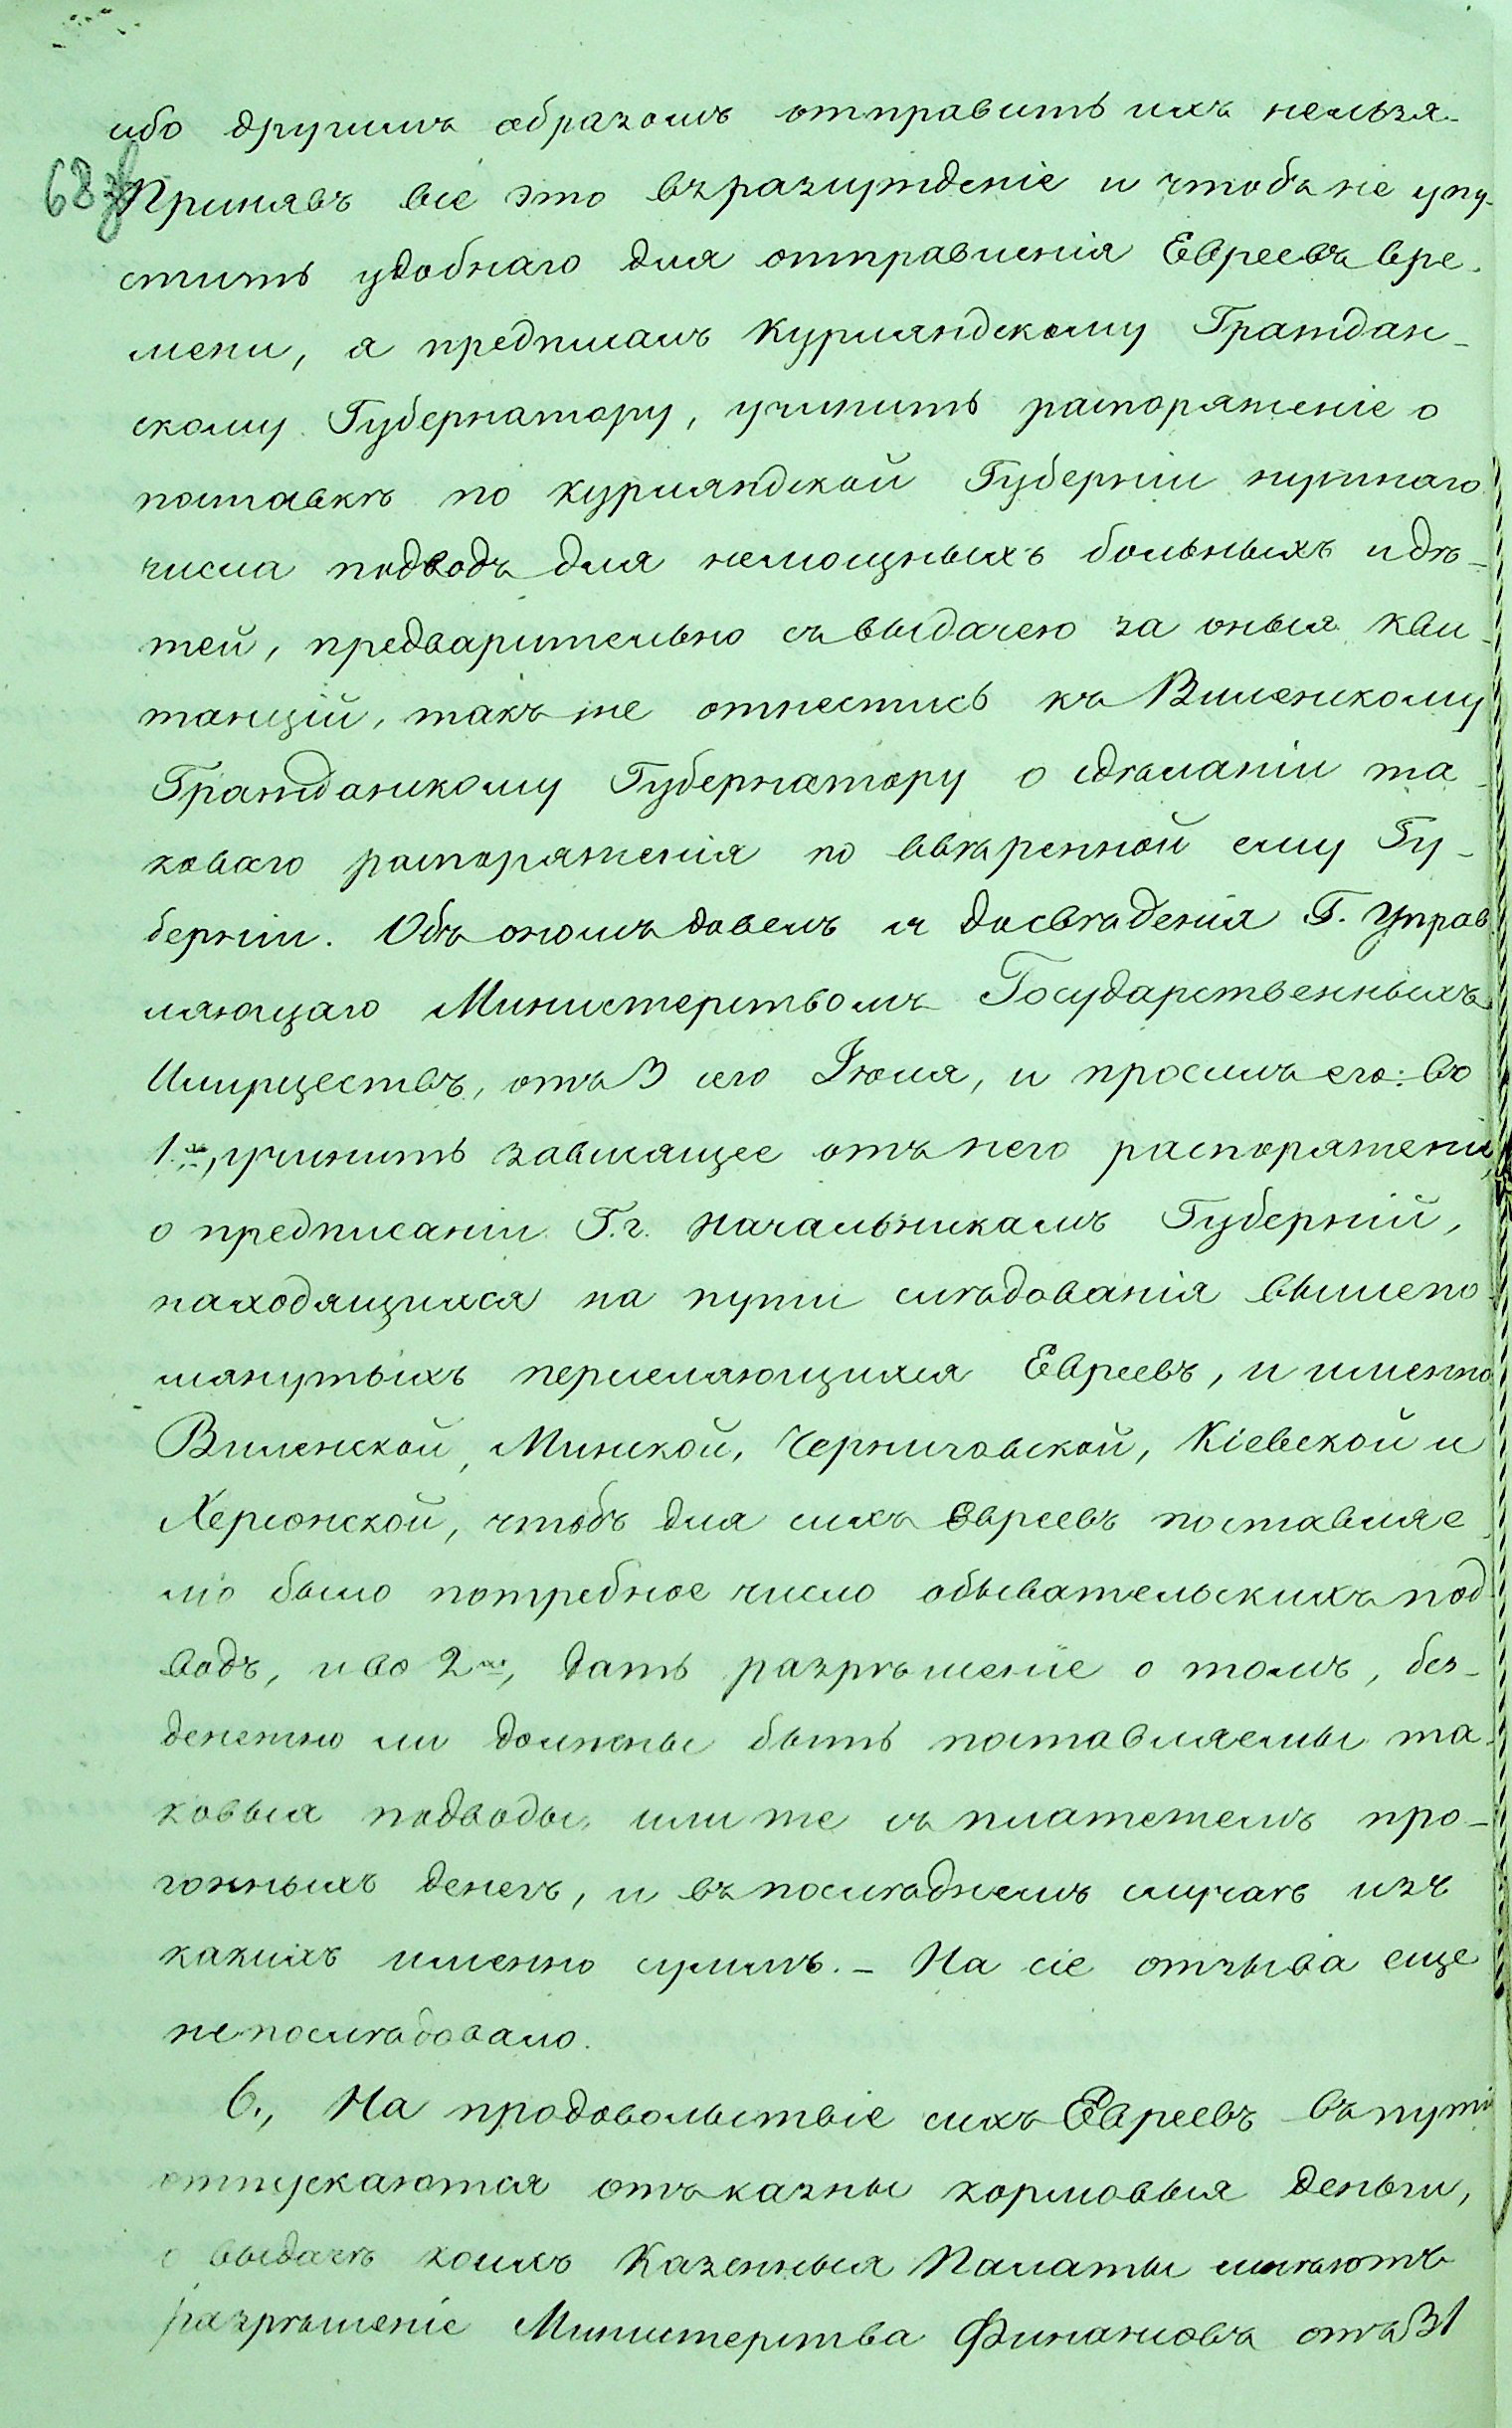 ибо другимъ образомъ отправить ихъ нельзя.
68
Принявъ все это въ разсужденіе и чтобъ не упу-
стить удобнаго для отправленія Евреевъ вре-
мени, я предписалъ Курляндскому Граждан-
скому Губернатору, учинить распоряженіе о
поставкѣ по Курляндской Губерніи нужнаго
числа подводъ для немощныхъ больныхъ и дѣ-
тей, предварительно съ выдачею за оныя кви-
танцій, такъ же отнестись къ Виленскому
Гражданскому Губернатору о сдѣланіи та-
коваго распоряженія по ввѣренной ему Гу-
берніи. Объ ономъ довелъ я до свѣденія Г. Управ
ляющаго Министерствомъ Государственныхъ
Имуществъ, отъ 3 сего Іюля, и просилъ его: во
1.хъ, учинить зависящее отъ него распоряженіе
о предписаніи Г.г. Начальникамъ Губерній,
находящихся на пути слѣдованія вышепо-
мянутыхъ переселяющихся Евреевъ, и именно
Виленской, Минской, Черниговской, Кіевской и
Херсонской, чтобъ для сихъ Евреевъ поставляе-
мо было потребное число обывательскихъ под-
водъ, и во 2хъ, дать разрѣшеніе о томъ, без-
денежно ли должны быть поставляемы та-
ковыя подводы, или же съ платежемъ про-
гонныхъ денегъ, и въ послѣднемъ случаѣ изъ
какихъ именно суммъ. – На сіе отзыва еще
не послѣдовало.
6., На продовольствіе сихъ Евреевъ въ пути
отпускаются отъ казны кормовыя деньги,
о выдачѣ коихъ Казенныя Палаты имѣютъ
разрѣшеніе Министерства Финансовъ отъ 31